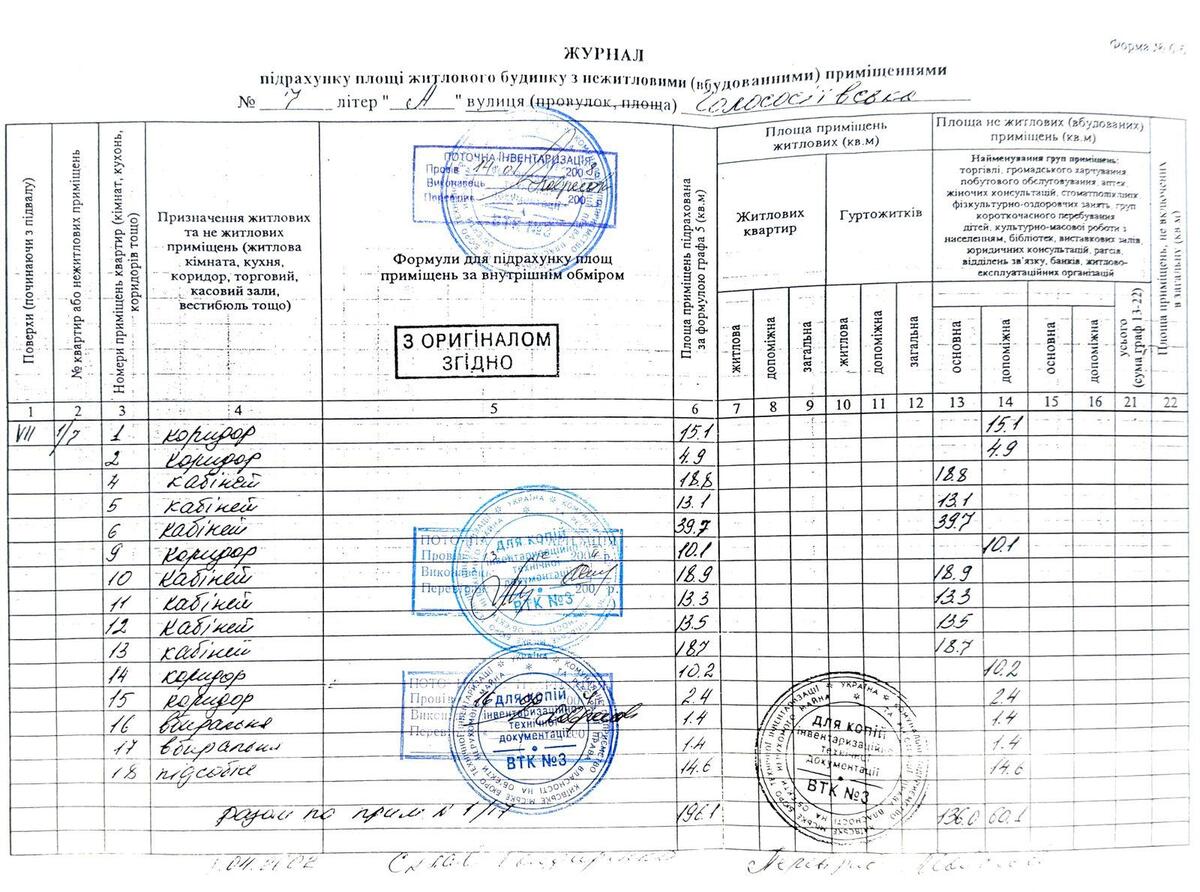 Форма № 6-б
ЖУРНАЛ
підрахунку площі житлового будинку з нежитловими (вбудованними) приміщеннями
№ 7 літер " А " вулиця (провулок, площа) Голосіївська
Поверхи (починаючи з підвалу)
№ квартир або нежитлових приміщень
Номери приміщень квартир (кімнат, кухонь, коридорів тощо)
Призначення житлових
та не житлових
приміщень (житлова
кімната, кухня,
коридор, торговий,
касовий зали,
вестибюль тощо)
Формули для підрахунку площ
приміщень за внутрішнім обміром
Площа приміщень підрахована
за формулою графа 5 (кв.м)
Площа приміщень
житлових (кв.м)
Житлових
квартир
Гуртожитків
житлова
допоміжна
загальна
житлова
допоміжна
загальна
Площа не житлових (вбудованих)
приміщень (кв.м)
Найменування груп приміщень:
торгівлі, громадського харчування
побутового обслуговування, аптек
жіночих консультацій, стоматполікциних
фізкультурно-оздорочих занять, груп
короткочасного перебування
дітей, культурно-масової роботи з
населенням, бібліотек, виставкових залів,
юридичних консультацій, рагсів,
відділень зв'язку, банків, житлово-
експлуатаційних організацій
основна
допоміжна
основна
допоміжна
усього
(сума граф 13-22)
Площа приміщень, не включених
в загальну (кв м)
ПОТОЧНА ІНВЕНТАРИЗАЦІЯ
Провів 14.01 200
Виконавець
Перевірив 200
ВТК №3
З ОРИГІНАЛОМ
ЗГІДНО
1 2 3 4 5 6 7 8 9 10 11 12 13 14 15 16 21 22
VII 1/7 1 коридор 15.1 15.1
2 коридор 4.9 4.9
4 кабінет 18.8 18.8
5 кабінет 13.1 13.1
6 кабінет 39.7 39.7
9 коридор 10.1 10.1
10 кабінет 18.9 18.9
11 кабінет 13.3 13.3
12 кабінет 13.5 13.5
13 кабінет 18.7 18.7
14 коридор 10.2 10.2
15 коридор 2.4 2.4
16 вбиральня 1.4 1.4
17 вбиральня 1.4 1.4
18 підсобне 14.6 14.6
разом по прим № 1/17 196.1 136.0 60.1
ДЛЯ КОПІЙ
інвентаризаційно
технічної
документації
ВТК №3
ДЛЯ КОПІЙ
інвентаризаційно
технічної
документації
ВТК №3
ДЛЯ КОПІЙ
інвентаризаційно
технічної
документації
ВТК №3
.04.2002